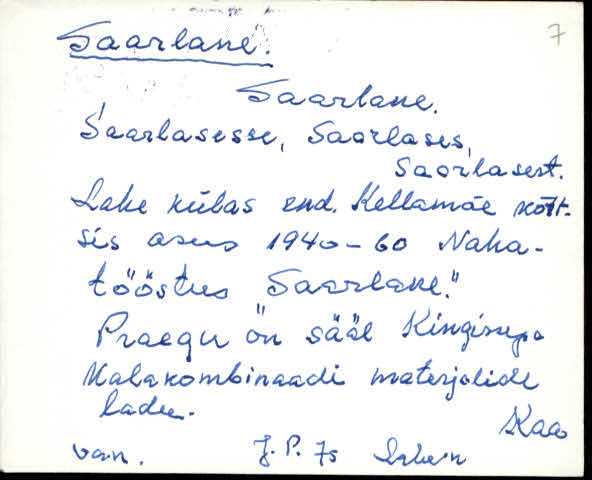 Saarlane.
7
Saarlane.
Saarlasesse, Saarlases,
Saarlasest.
Lahe külas end. Kellamäe kõrt-
sis asus 1940-60 Naha-
tööstus "Saarlane."
Praegu on sääl Kingissepa
Kalakombinaadi materjalide
ladu.
Kaa
van. J. P. Is